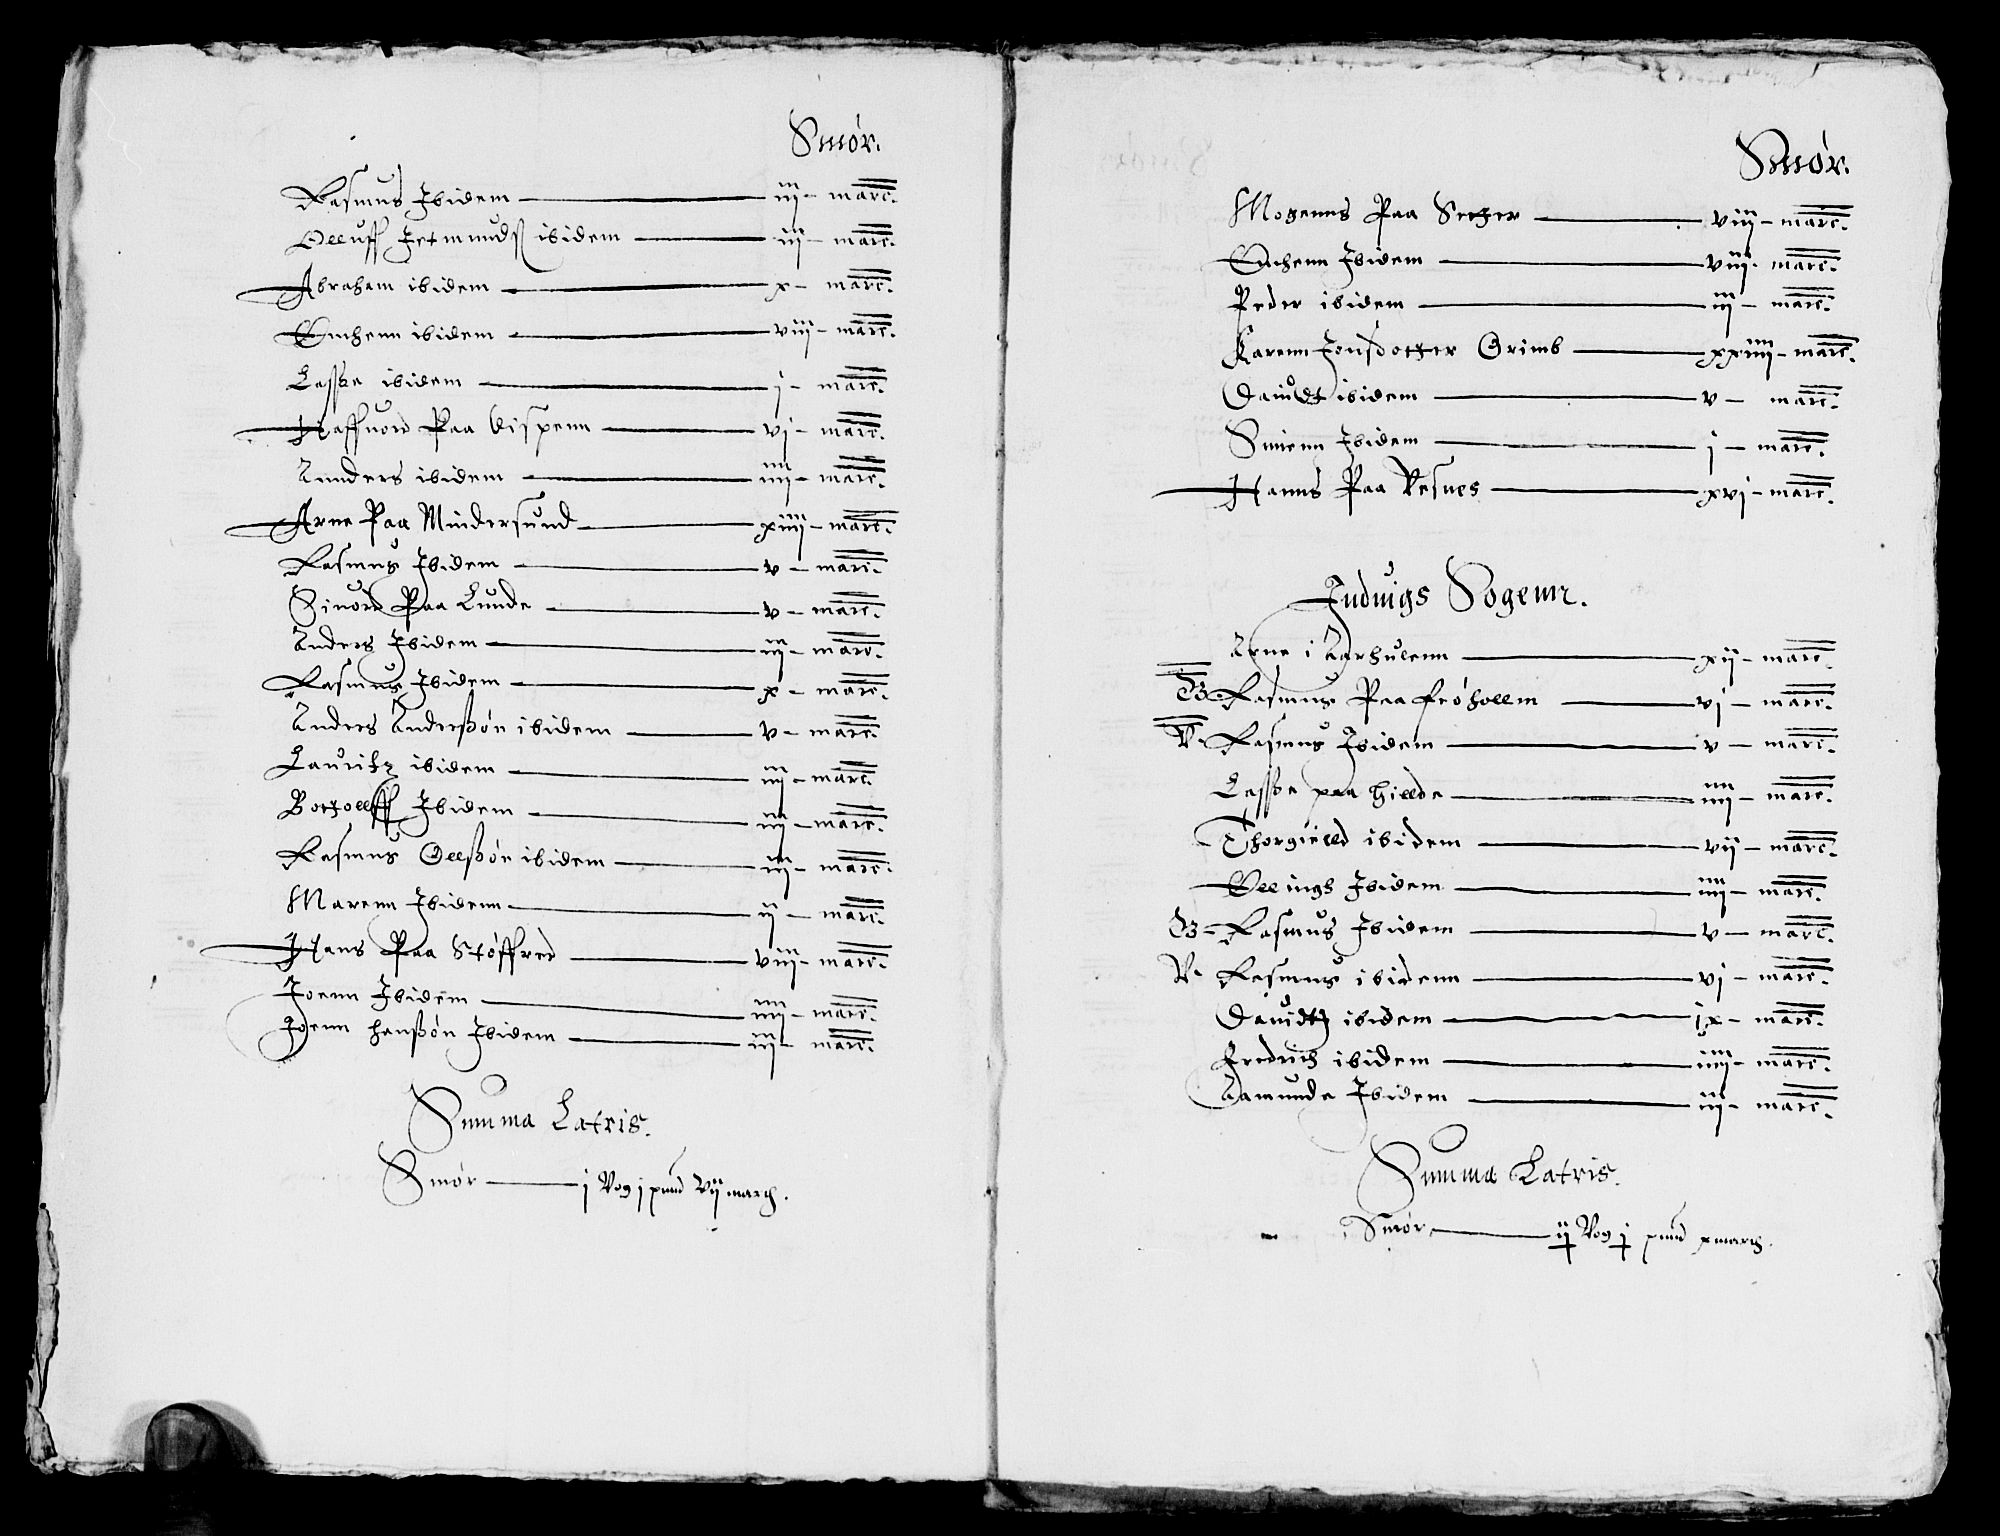 Smør.
Rasmus Ibidem — iij — marc.
Oeluff Jetmundß ibidem — iij — marc.
Abraham ibidem — x — marc.
Enchenn ibidem — viij — marc.
Lasse ibidem — j — marc.
Haffuord Paa Vispenn — vj — marc.
Annders ibidem — iiij — marc.
Arne Paa Mindersund — xiiij — marc.
Rasmus Ibidem — v — marc.
Siuord Paa Lunde — v — marc.
Anders Ibidem — iij — marc.
Rasmus Ibidem — x — marc.
Anders Anderßøn ibidem — v — marc.
Lauritz ibidem — iij — marc.
Botzolff Ibidem — iij — marc.
Rasmus Oelßøn ibidem — iij — marc.
Marenn Ibidenn — ij — marc.
Hans Paa Støffred — viij — marc.
Joenn Ibidem — iiij — marc.
Joenn hanßøn Ibidem — iij — marc.
Summa Latris.
Smør — j Vog j pund vij march.
Smør.
Mogenns Paa Setzer — viij — marc.
Enchenn Ibidem — viij. marc.
Peder ibidem — iij — marc.
Karenn Jonsdotter Grimb — xxiiij — marc.
Dauidt ibidem — v — marc.
Suienn Ibidem — j — marc.
Hanns Paa Vesnes — xvj — marc.
Induigs Sogenn.
Arne i Aarhulenn — xij — marc.
B. Rasmus Paa Frøhollm — vj — marc.
V. Rasmus Ibidem — v — marc.
Lasse paa Hillde — iiij — marc.
Thorgielld ibidem — vij — marc.
Ellingh Ibidem — iiij — marc.
B — Rasmus Ibidem — v — marc.
V. Rasmus ibidenn — vj — marc.
Dauidt ibidem — ix — marc.
Fredrich ibidem — iiij — marc.
Aamunde Ibidem — iij — marc.
Summa Latris.
Smør — ij Vog j pund x march.